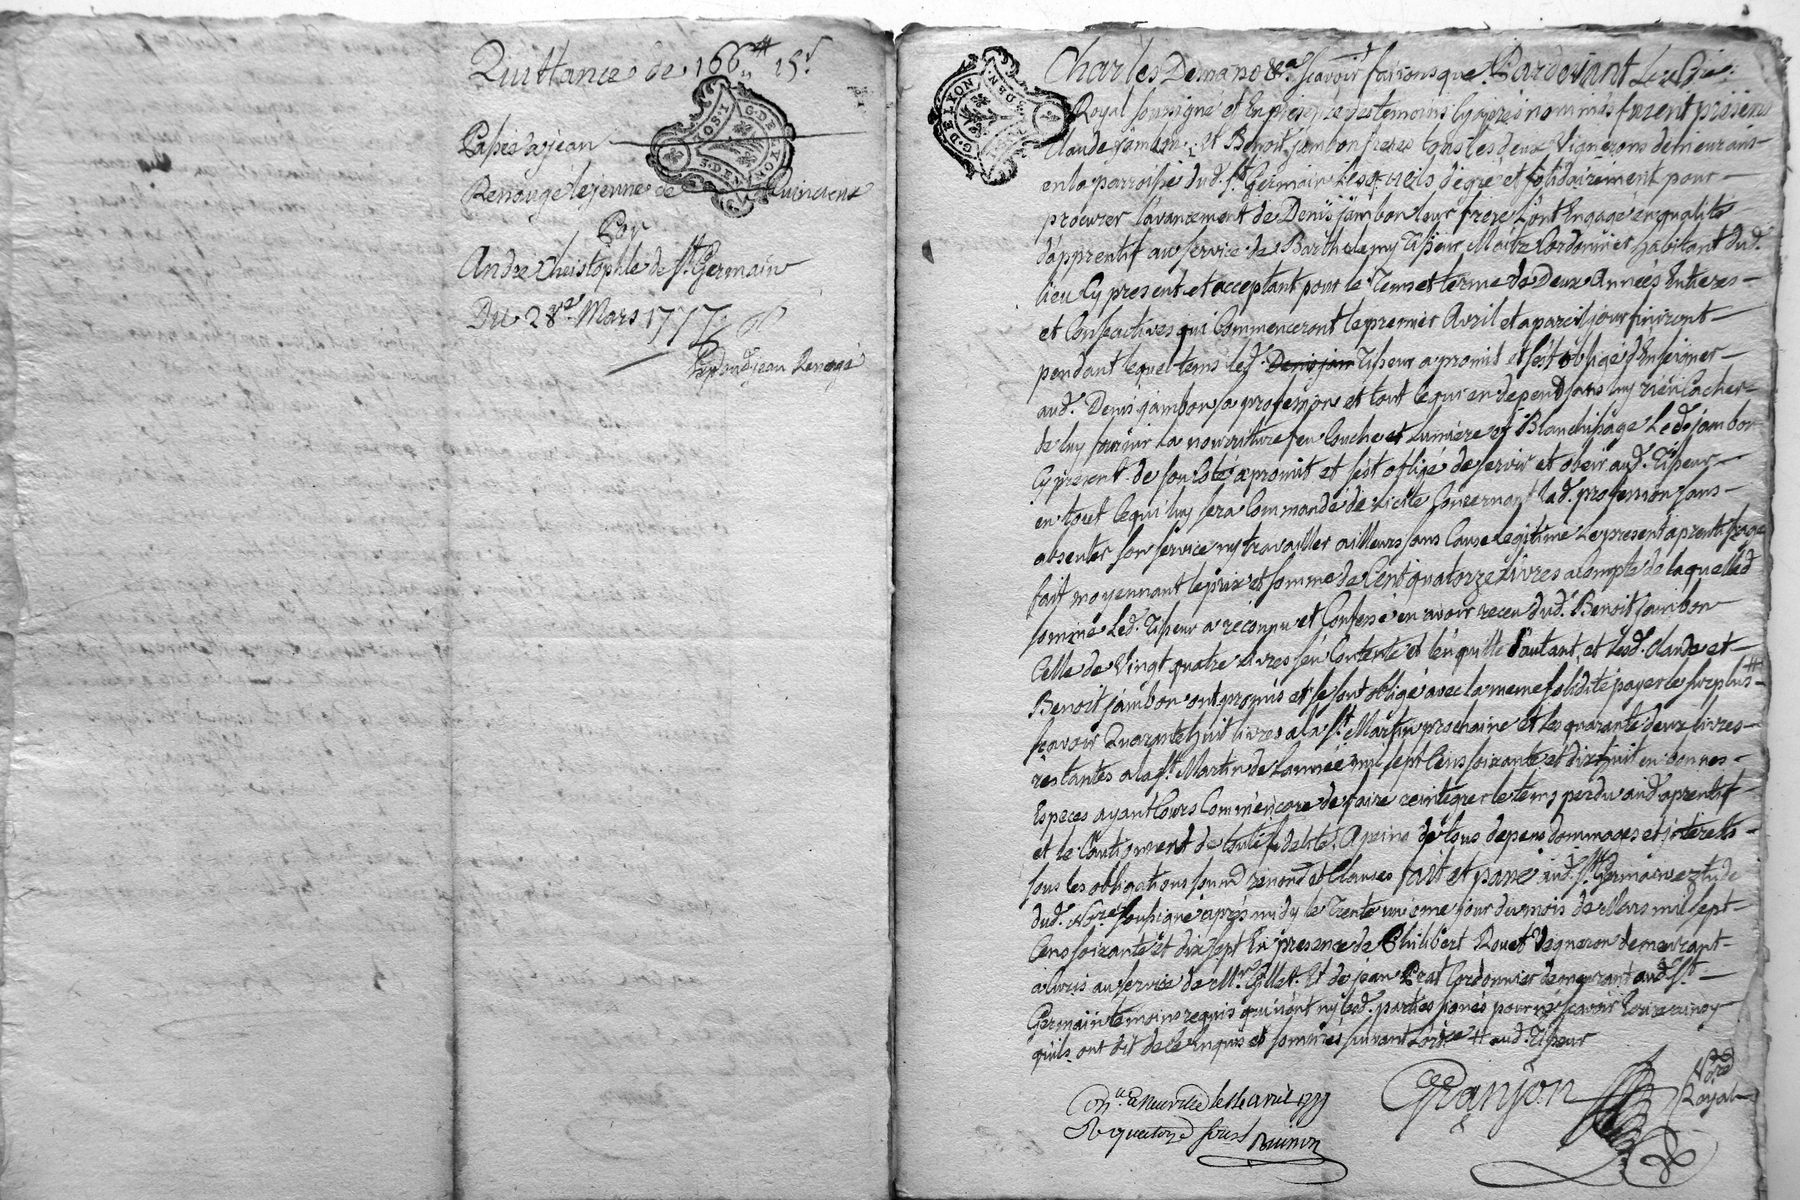 Quittance de 166 ₶ 15 s
Passée a jean
Renouge le jeune de Quincieux
Par
Andre Christophle de st Germain
Du 28e Mars 1777
jean Renouge
G. DE LYON
G. DE LYON
Charles Demano &a scavoir faisons que Pardevant Le Nre
Royal soussigné et En presence des temoins Cy apres nommés furent présens
Claude jambon et Benoit jambon freres tous les deux Vignerons demeurans
en la parroisse dud. st Germain Lesquels de gré et solidairement pour
procurer l'avancement de Denis jambon leur frere L'ont Engagé en qualité
d'apprentif au service de Barthelemy Tisseur Maitre Cordonnier habitant dud.
lieu Cy present et acceptant pour le Tems et terme de Deux Années Entieres
et Consecutives qui Commenceront le premier Avril et a pareil jour finiront
pendant lequel tems led. Denis jam Tisseur a promit et s'est obligé d'Enseigner
aud. Denis jambon sa profession et tout ce qui en depend sans luy rien Cacher
de luy fournir la nourriture feu Couche et Lumiere et Blanchissage Led. jambon
Cy present de son Coté a promit et s'est obligé de servir et obeir aud. Tisseur
en tout ce qui luy sera Commandé de licite Concernant lad. profession sans
absenter son service ny travailler ailleurs sans Cause legitime Le present aprentissage
fait moyennant le prix et somme de Cent quatorze Livres a Compte de laquelle d
somme Led. Tisseur a reconnu et Confessé en avoir receu dud. Benoit jambon
Celle de Vingt quatre Livres s'en Contente et l'en quitte d'autant, et lesd. Claude et
Benoit jambon ont promis et se sont obligé avec la meme solidité payer le surplus ₶
scavoir Quarante huit livres a la st Martin prochaine et les quarante deux livres
restantes a la st Martin de l'année mil sept Cens soixante et dix huit en bonnes
Especes ayant Cours Comm'encore de faire reintegrer le tems perdu aud. aprentif
et le Cautionnent de toute fidelité. A peine de tous depens dommages et interetts
sous les obligations soumd renond et Clauses fait et passé aud. st Germain etude
dud. Nre soussigné après midy le Trente unieme jour du mois de Mars mil sept
Cens soixante et dix sept En presence de Philibert Rouet Vigneron demeurant
a Curis au service de Mr Gillet. Et de jean Prat Cordonnier demeurant aud. st
Germain temoins requis qui n'ont ny lesd. parties signés pour ne scavoir Ecrire ainsy
qu'ils ont dit de ce Enquis et sommés suivant L'ordce ₶ aud. Tisseur
Granjon Nre Royal
Conlé a Neuville le 14 avril 1777
Re quatorze sous